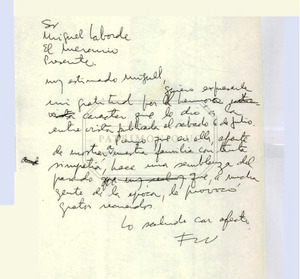 Sr
Miguel Laborde
El Mercurio
Presente.
my estimado Miguel,
quiero expresarle
mi gratitud por el
caracter que le dio a
entrevista publicada el sabado 6 de julio.
Porque en ella, aparte
de mostrar a nuestra familia con tanta
simpatía, hace una semblanza del
pasado que, a mucha
gente de la época, le provocó
gratos recuerdos.
Lo saluda con afecto